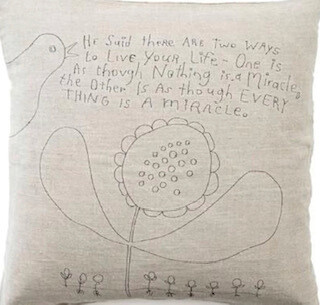 He Said there ARE TWO WAYS
to LIVE YOUR LIFE - ONE is
As though Nothing is a Miracle,
the Other is As though EVERY
THING IS A MIRACLE.